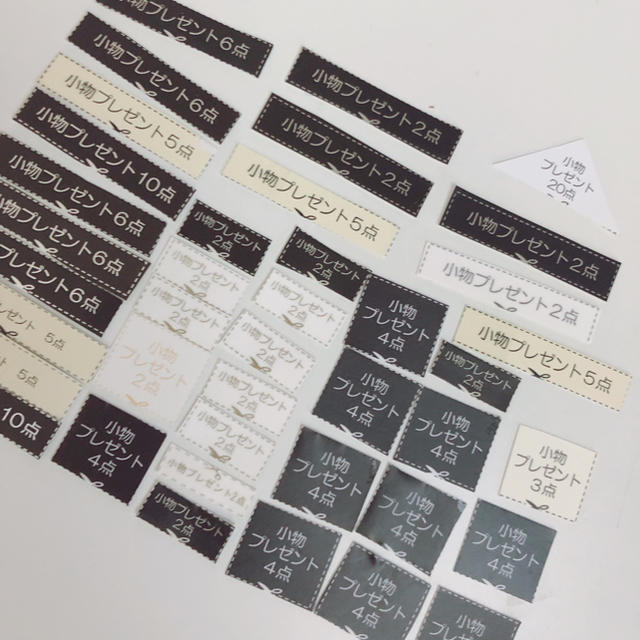 小物プレゼント6点
小物プレゼント6点
小物プレゼント5点
小物プレゼント10点
小物プレゼント6点
小物プレゼント6点
小物プレゼント6点
5点
5点
10点
小物プレゼント2点
小物プレゼント2点
小物プレゼント5点
小物
プレゼント
20点
小物プレゼント2点
小物プレゼント2点
小物プレゼント5点
小物プレゼント
2点
小物プレゼント
2点
小物プレゼント
2点
小物
プレゼント
2点
小物
プレゼント
4点
小物プレゼント
2点
小物プレゼント
2点
小物プレゼント
2点
小物プレゼント
2点
小物プレゼント
2点
小物プレゼント2点
小物プレゼント
2点
小物
プレゼント
4点
小物プレゼント
2点
小物
プレゼント
4点
小物
プレゼント
4点
小物
プレゼント
3点
小物
プレゼント
4点
小物
プレゼント
4点
小物
プレゼント
4点
小物
プレゼント
4点
小物
プレゼント
4点
小物
プレゼント